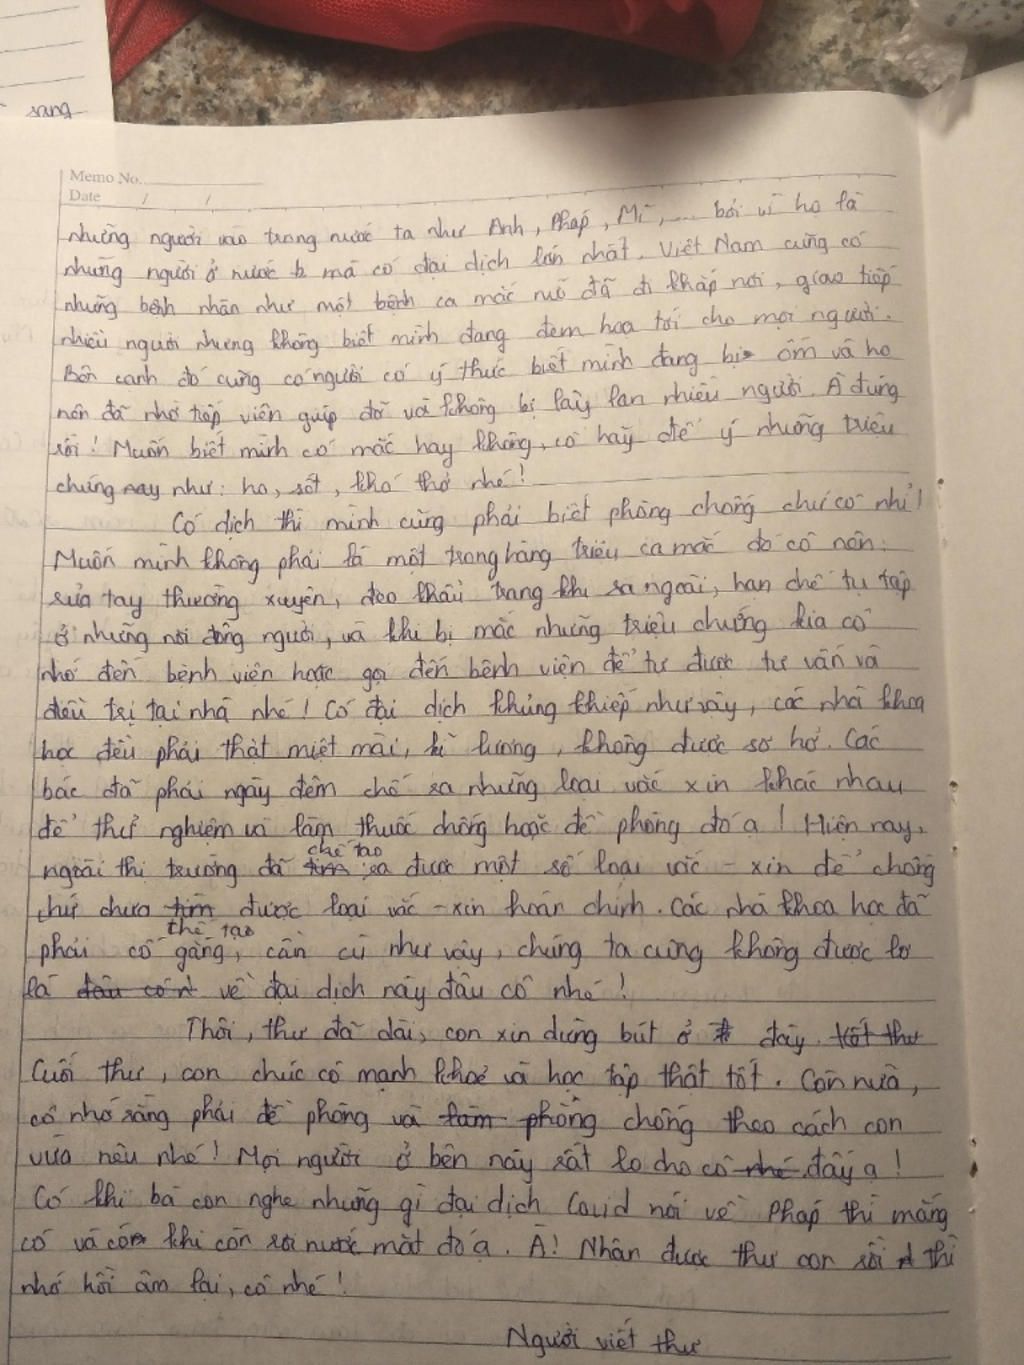 sang
Memo No.
Date / /
những người vào trong nước ta như Anh, Pháp, Mĩ,... bởi vì họ là
những người ở nước mà có đại dịch lớn nhất. Việt Nam cũng có
những bệnh nhân như một bệnh ca mắc nó đã đi khắp nơi, giao tiếp
nhiều người nhưng không biết mình đang đem họa tới cho mọi người.
Bên cạnh đó cũng có người có ý thức biết mình đang bị ốm và ho
nên đã nhờ tiếp viên giúp đỡ và không bị lây lan nhiều người. À đúng
rồi! Muốn biết mình có mắc hay không, cô hãy để ý những triệu
chứng này như: ho, sốt, khó thở nhé!
Có dịch thì mình cũng phải biết phòng chống chứ cô nhỉ!
Muốn mình không phải là một trong hàng triệu ca mắc đó cô nên:
rửa tay thường xuyên, đeo khẩu trang khi ra ngoài, hạn chế tụ tập
ở những nơi đông người, và khi bị mắc những triệu chứng kia cô
nhớ đến bệnh viện hoặc gọi đến bệnh viện để tự được tư vấn và
điều trị tại nhà nhé! Có đại dịch khủng khiếp như vậy, các nhà khoa
học đều phải thật miệt mài, kĩ lưỡng, không được sơ hở. Các
bác đã phải ngày đêm chế ra những loại vắc xin khác nhau
để thử nghiệm và làm thuốc chống hoặc đề phòng đó ạ! Hiện nay,
chế tạo
ngoài thị trường đã tìm ra được một số loại vắc - xin để chống
chứ chưa tìm được loại vắc - xin hoàn chỉnh. Các nhà khoa học đã
chế tạo
phải cố gắng, cần cù như vậy, chúng ta cũng không được lơ
là đâu cô n về đại dịch này đâu cô nhé!
Thôi, thư đã dài, con xin dừng bút ở đây.
Cuối thư, con chúc cô mạnh khoẻ và học tập thật tốt. Còn nữa,
cô nhớ rằng phải đề phòng và làm phòng chống theo cách con
vừa nêu nhé! Mọi người ở bên này rất lo cho cô nhé đấy ạ!
Có khi bà con nghe những gì đại dịch Covid nói về Pháp thì mắng
cố và có khi còn rơi nước mắt đó ạ. À! Nhận được thư con rồi thì
nhớ hồi âm lại, cô nhé!
Người viết thư